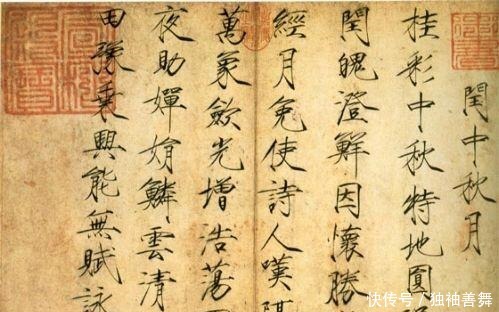 閏中秋月
桂彩中秋特地圓
閏魄澄鮮因懷勝
經月免使詩人嘆
萬象斂光增浩蕩
夜助嬋娟鱗雲清
田豫乘興能無賦詠
快传号/独袖善舞